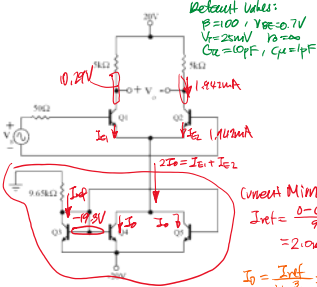 Default Values:
β=100, VBE=0.7V
VT=25mV ro=∞
Cπ=10pF, Cμ=1pF
20V
5kΩ
5kΩ
10.29V
+ Vo -
50Ω
Q1
Q2
IE1
IE2
2Io = IE1 + IE2
9.65kΩ
Iref
-19.3V
Io
Io
Q3
Q4
Q5
-20V
Current Mirr
Iref = 0-(
9
=2.0
Io = Iref